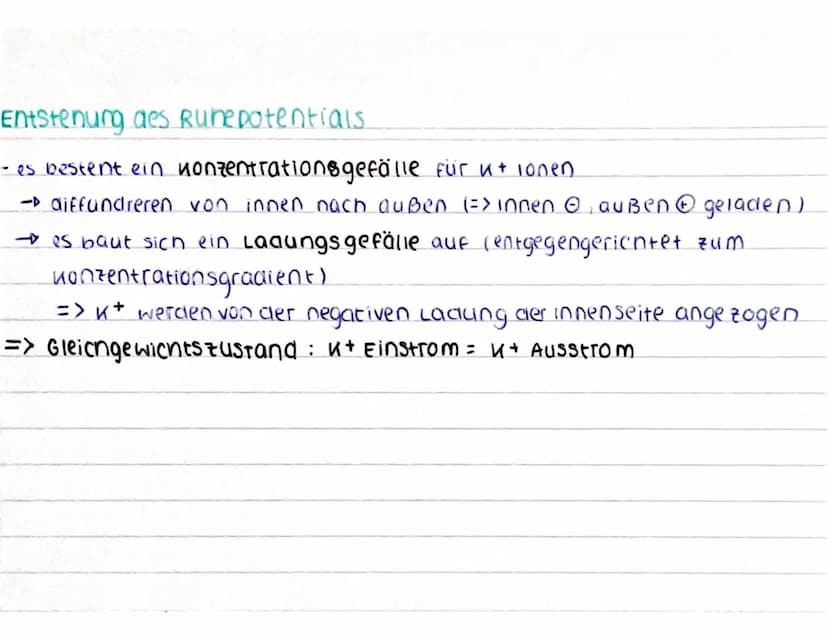 Entstehung des Ruhepotentials
- es besteht ein Konzentrationsgefälle für K+ Ionen
→ diffundreren von innen nach außen (=> innen ⊖, außen ⊕ geladen)
→ es baut sich ein Ladungsgefälle auf (entgegengerichtet zum
Konzentrationsgradient)
=> K+ werden von der negativen Ladung der Innenseite angezogen
=> Gleichgewichtszustand : K+ Einstrom = K+ Ausstrom